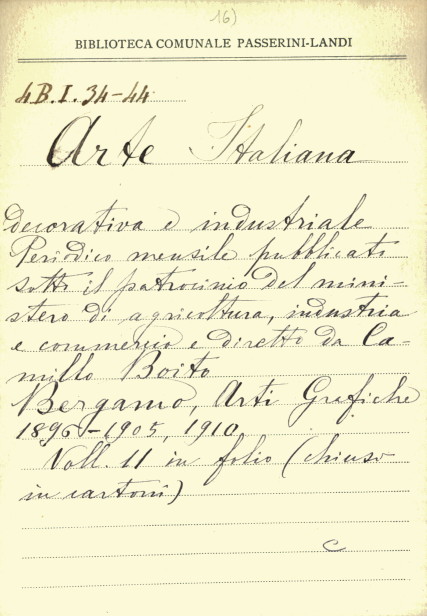 16)
BIBLIOTECA COMUNALE PASSERINI-LANDI
4B.I.34-44
Arte Italiana
decorativa e industriale
Periodico mensile pubblicato
sotto il patrocinio del mini-
stero di agricoltura, industria
e commercio e diretto da Ca-
millo Boito
Bergamo, Arti Grafiche
1896-1905, 1910
Voll. 11 in folio (chiuso
in cartoni)
c